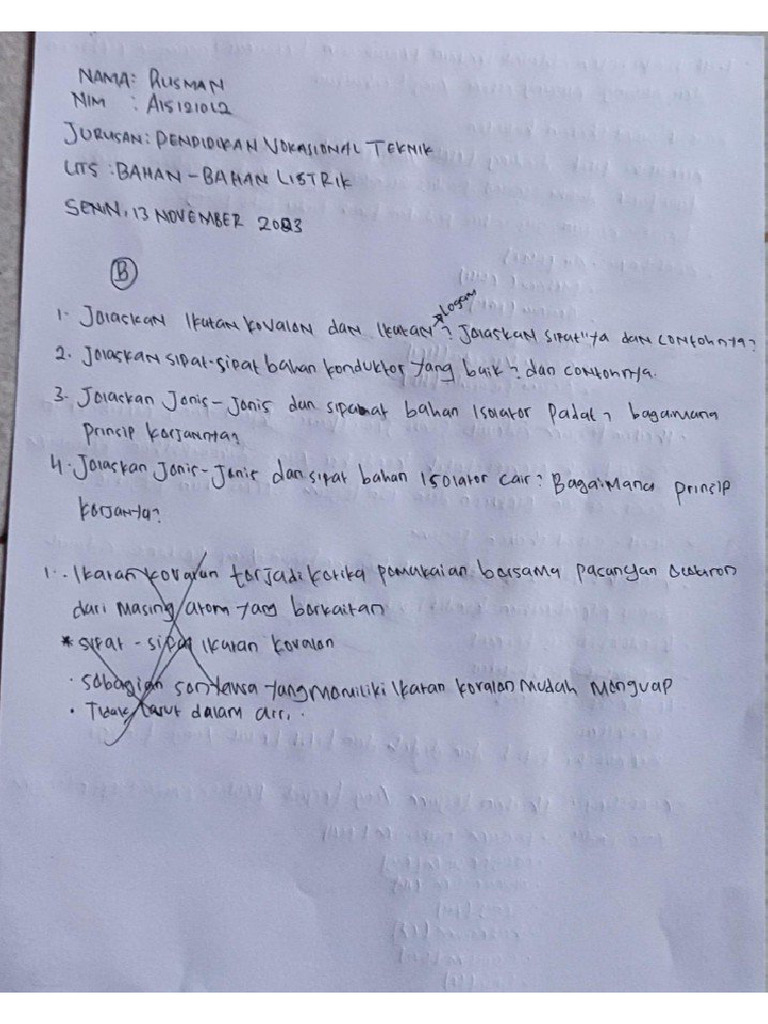 NAMA: RUSMAN
NIM : A1512101
JURUSAN: PENDIDIKAN VOKASIONAL TEKNIK
UTS : BAHAN-BAHAN LISTRIK
SENIN, 13 NOVEMBER 2023
B
1. Jelaskan Ikatan kovalen dan Ikatan Logam? Jelaskan sipat"ya dan contohnya?
2. Jelaskan sipat-sipat bahan konduktor yang baik? dan contohnya.
3. Jelaskan Jenis-Jenis dan sipat bahan Isolator Padat, bagaimana
prinsip kerjanya?
4. Jelaskan Jenis-Jenis dan sipat bahan Isolator cair? Bagaimana prinsip
kerjanya?
1. Ikatan kovalen terjadi ketika pemakaian bersama pasangan
dari masing atom yang berkaitan
* sipat-sipat Ikatan kovalen
• sebagian senyawa yang memiliki Ikatan kovalen mudah menguap
• Tidak larut dalam air.